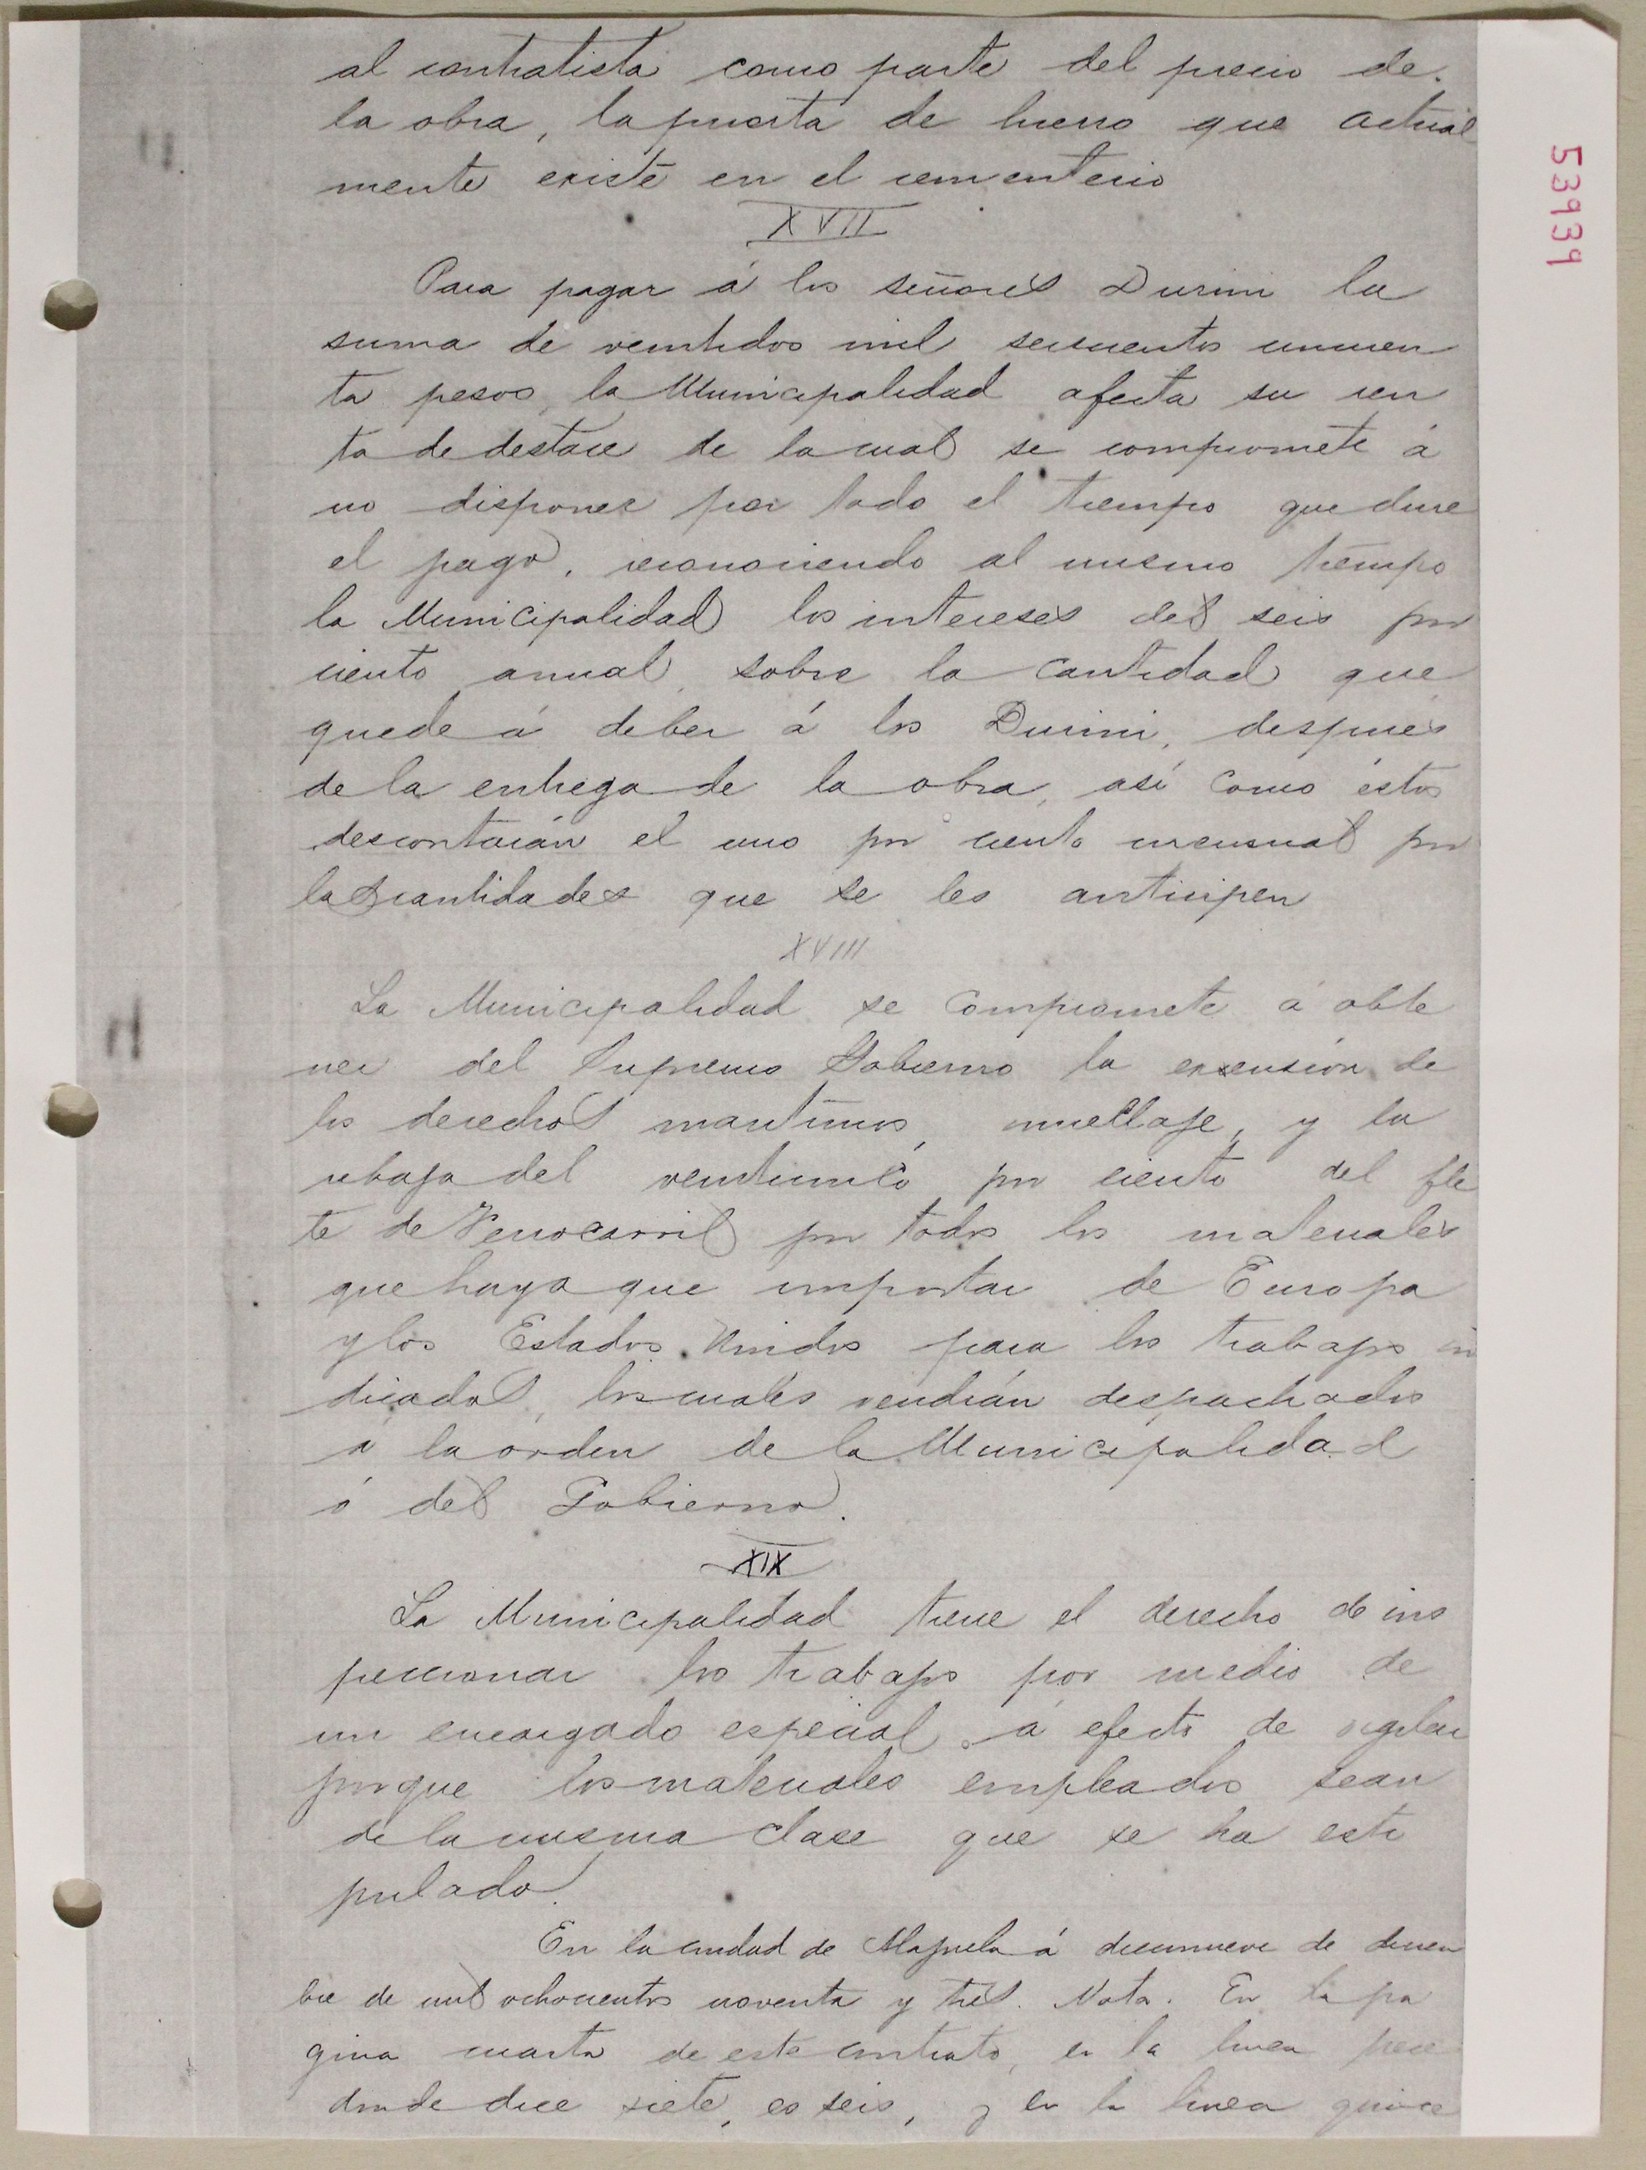 al contratista como parte del precio de
la obra, la puerta de hierro que actual
mente existe en el cementerio
XVII
Para pagar á los señores Durini la
suma de veintidos mil seiscientos cincuen
ta pesos, la Municipalidad afecta su ren
ta de destace de la cual se compromete á
no disponer por todo el tiempo que dure
el pago, reconociendo al mismo tiempo
la Municipalidad los intereses del seis por
ciento anual, sobre la cantidad que
quede á deber á los Durini, despues
de la entrega de la obra, así como éstos
descontarán el uno por ciento mensual por
las cantidades que se les anticipen
XVIII
La Municipalidad se compromete á obte
ner del Supremo Gobierno la exensión de
los derechos maritimos, muellaje, y la
rebaja del veinticinco por ciento del fle
te de Ferrocarril por todos los materiales
que haya que importar de Europa
y los Estados Unidos para los trabajos in
dicados, los cuales vendrán despachados
á la orden de la Municipalidad
ó del Gobierno.
XIX
La Municipalidad tiene el derecho de ins
peccionar los trabajos por medio de
un encargado especial á efecto de vigilar
porque los materiales empleados sean
de la misma clase que se ha esti
pulado.
En la ciudad de Alajuela á diecinueve de diciem
bre de mil ochocientos noventa y tres. Nota. En la pa
gina cuarta de este contrato, en la linea
donde dice siete, es seis, y en la linea quince
53939